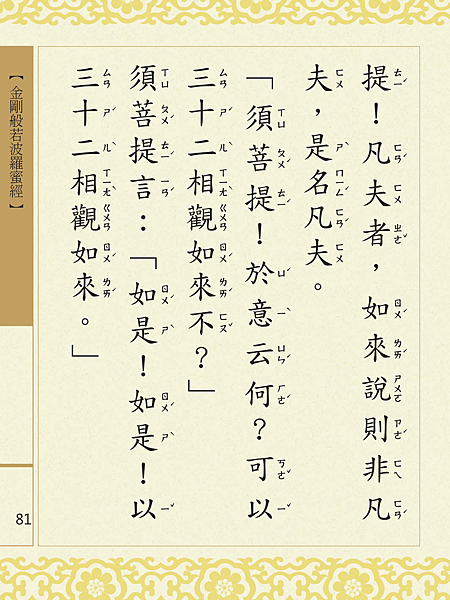 提！凡夫者，如來說則非凡
夫，是名凡夫。
「須菩提！於意云何？可以
三十二相觀如來不？」
須菩提言：「如是！如是！以
三十二相觀如來。」
【金剛般若波羅蜜經】
81